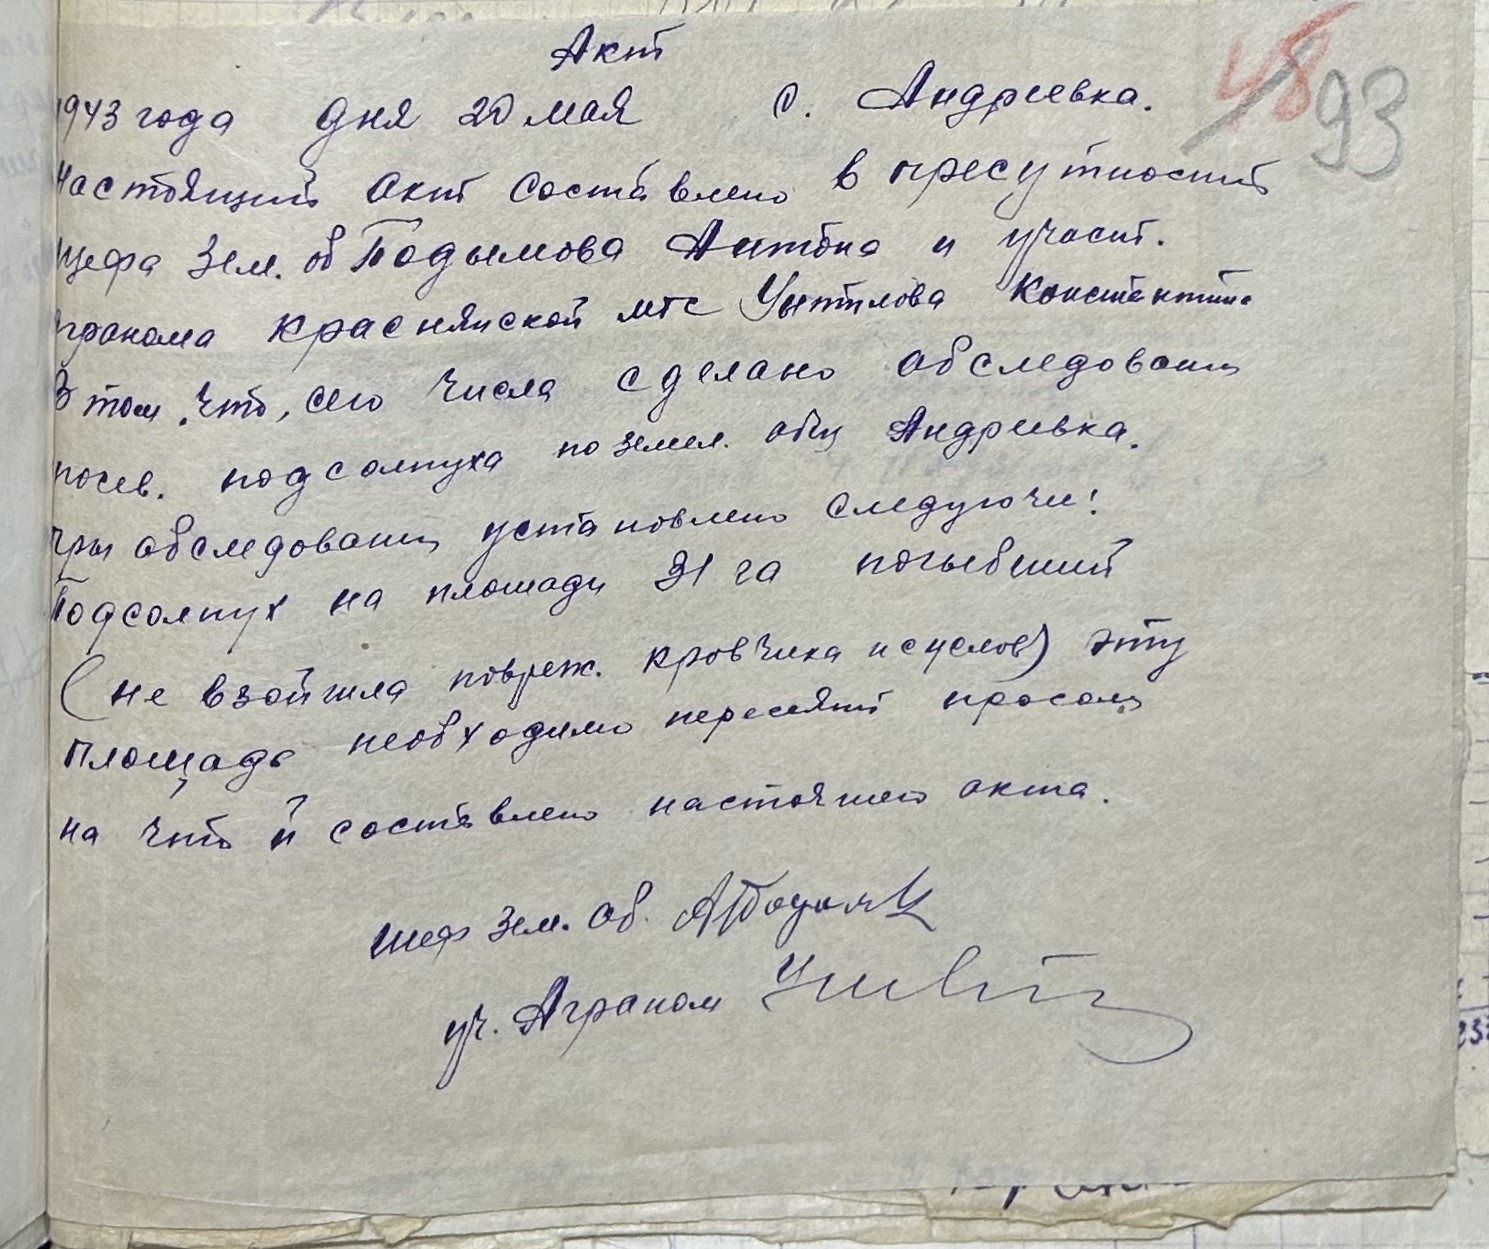 Акт
48 93
1943 года дня 20 мая с. Андреевка.
Настоящий акт составлено в пресутности
шефа Зем. об Подымова Антона и участ.
агранома краснянской мтс Константина
В том что, сего числа сделано обследовании
посев. подсолнуха по земел. общ Андреевка.
При обследовании установлено следуючи:
Подсолнух на площади 31 га погыбший
(не взойшла повреж. ) эту
площадь необходимо пересеять просом
на что й составлено настоящего акта.
шеф Зем. Об.
уч. Аграном